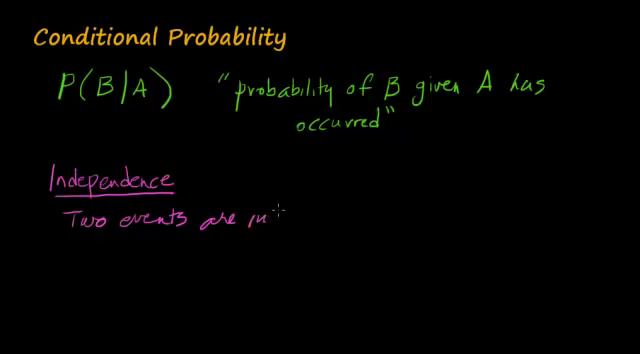 Conditional Probability
P(B/A) "probability of B given A has
occurred"
Independence
Two events are in